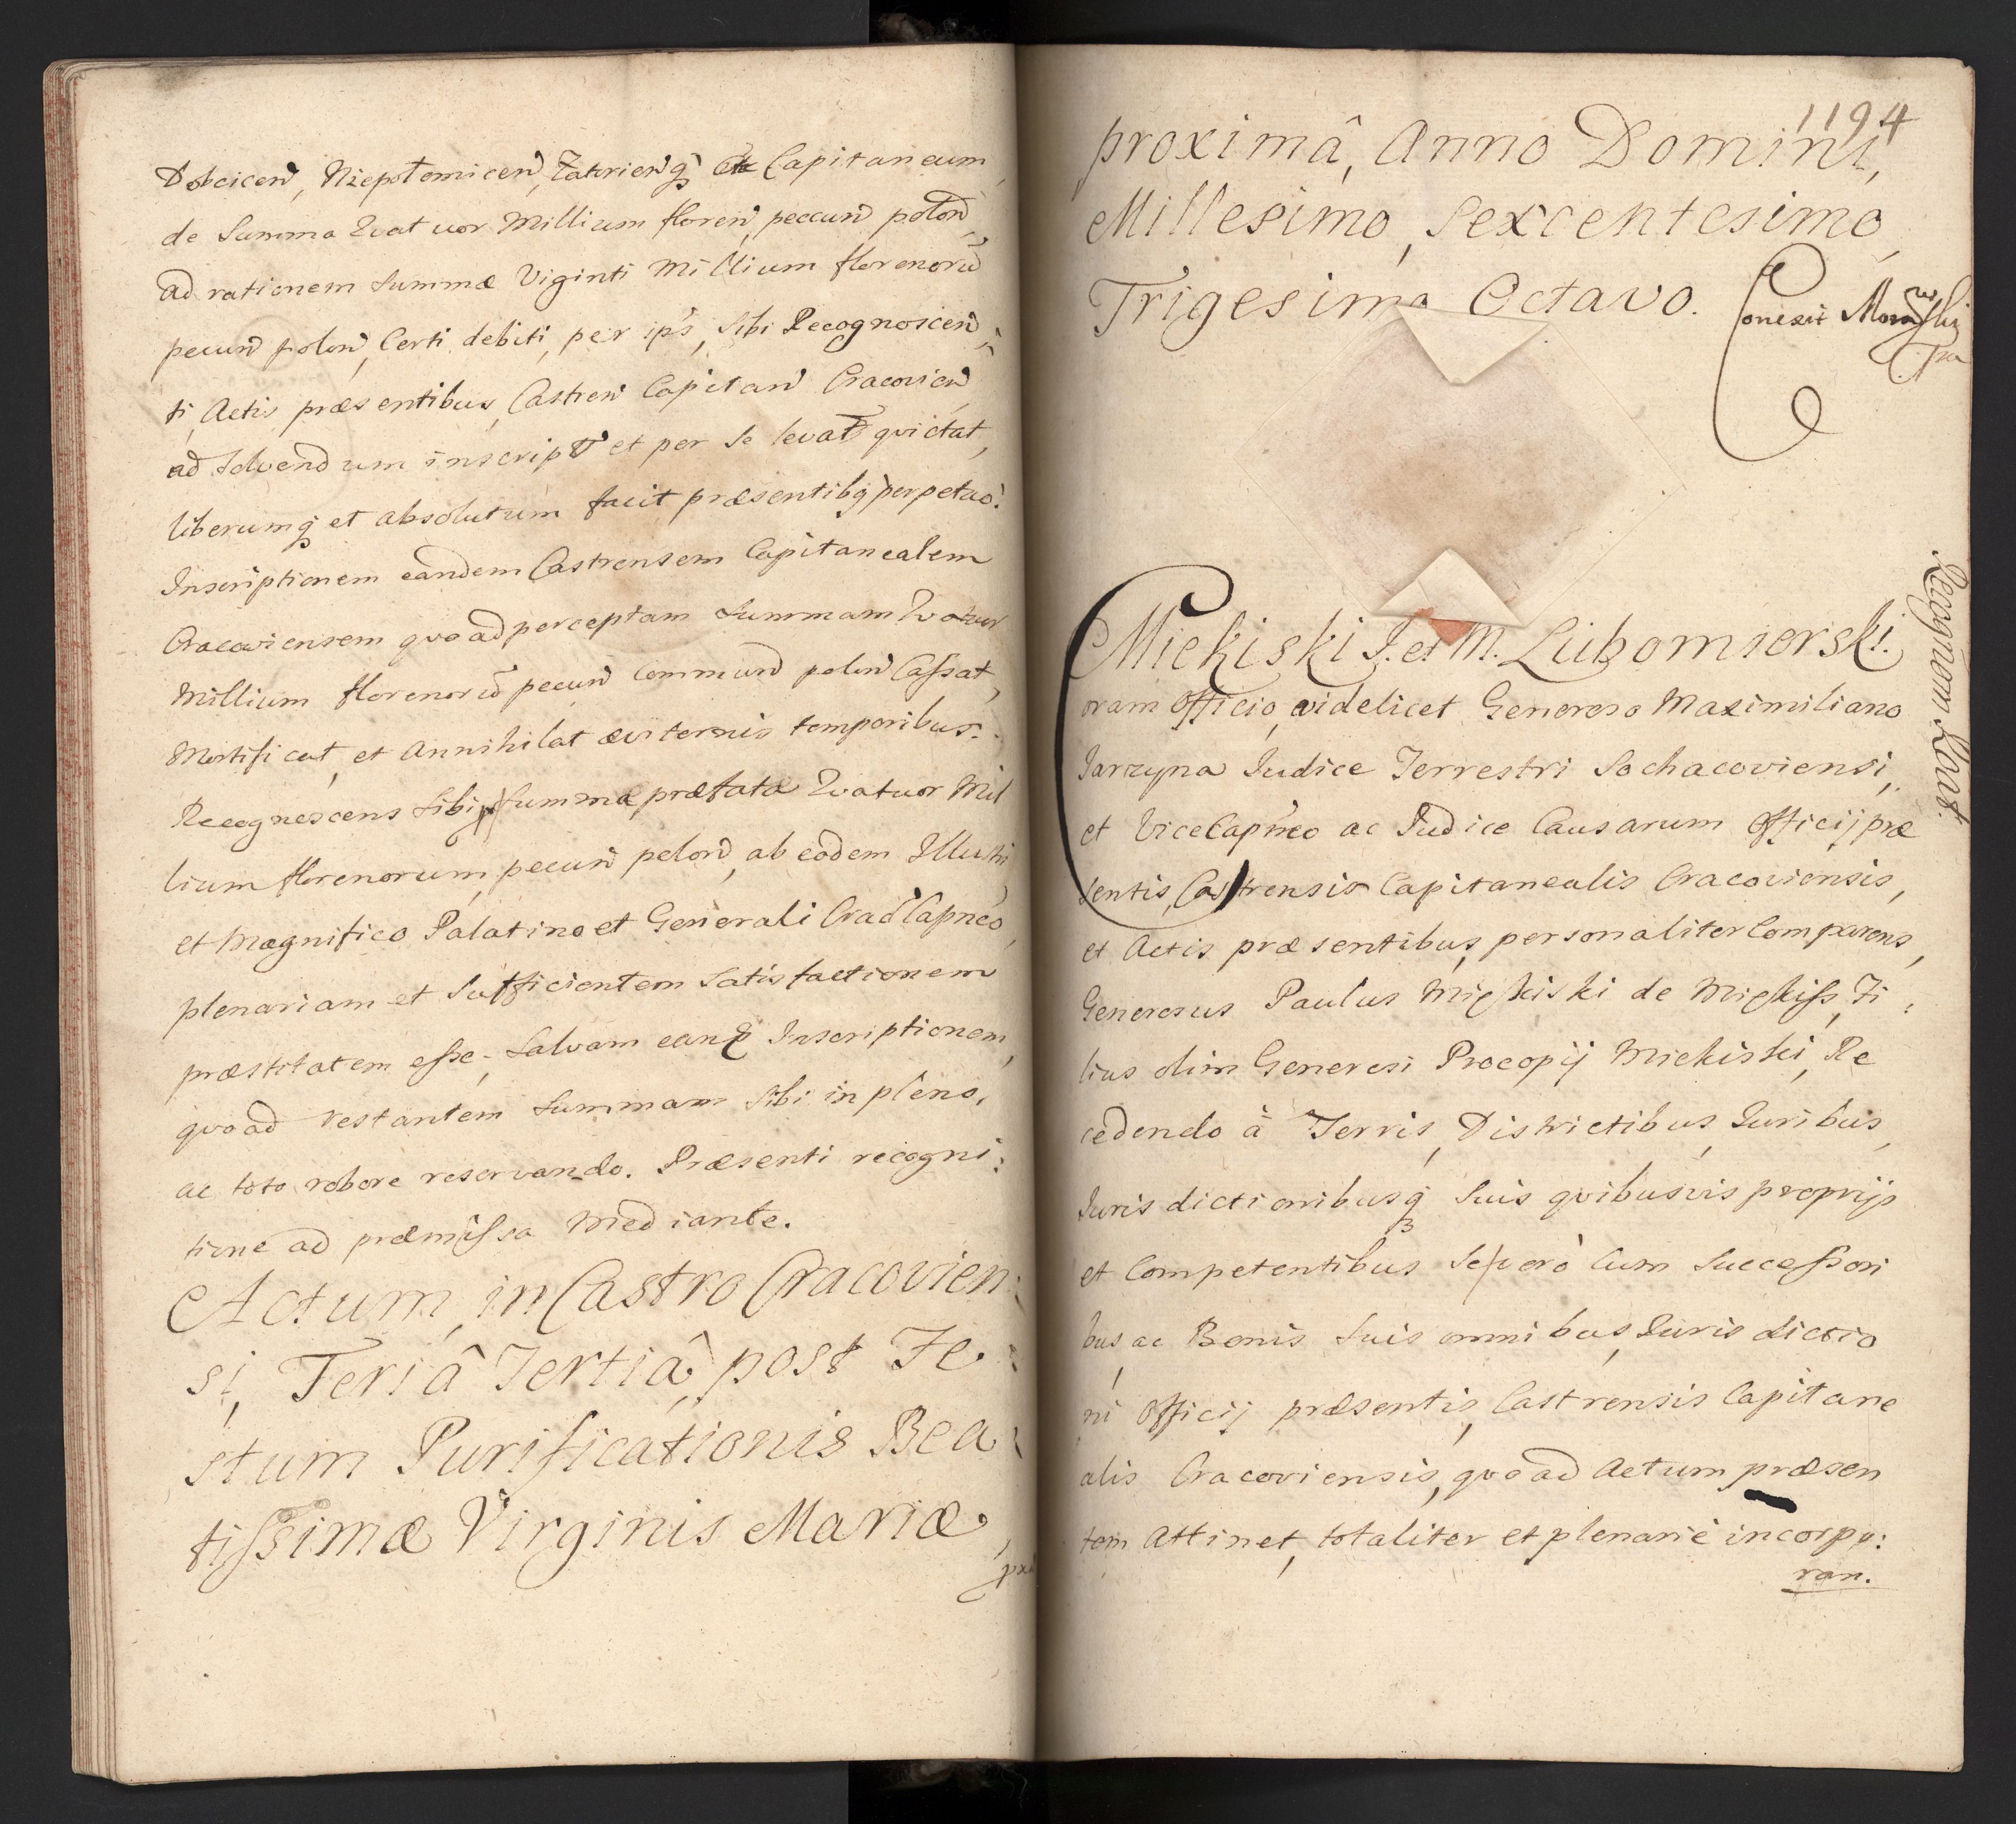 Dobcicen, Niepołomicen, Zatorienq́ etc Capitaneum
de Summa Quatuor Millium floren, peccun polon,
ad rationem Summæ Viginti Millium florenorũ
pecun polon, Certi debiti, per ip's, Sibi Recognoscen,
ti, Actis præsentibus, Castren Capitan Cracovien
ad Solvendum inscript et per Se levat quictat,
liberumq́ et absolutum facit præsentibq́ perpetuo:
Inscriptionem eandem Castrensem Capitanealem
Cracoviensem quoad perceptam Summam Quatuor
Millium florenorũ pecun commun polon Cassat,
Mortificat, et Annihilat æviternis temporibus:
Recognoscens Sibi Summæ præfatæ Quatuor Mil
lium florenorum, pecun polon, ab eodem Illustri
et Magnifico Palatino et Generali Crac Capneo,
plenariam et Sufficientem Satisfactionem
præstitatem esse. Salvam eanq́ Inscriptionem,
quoad restantem Summam Sibi in pleno,
ac toto robore reservando. Præsenti recogni:
tione ad præmissa Mediante.
Actum, in Castro Cracovien:
si, Feriâ Tertiâ, post Fe:
stum Purificationis Bea:
tissimæ Virginis Mariæ,
pro
1194
proximâ, Anno Domini,
Millesimo, Sexcentesimo,
Trigesimo Octavo.
Miekiski I. et M. Lubomierski.
Recognom. Host.
oram Officio, videlicet Generoso Maximiliano
Jarzyna Iudice Terrestri Sochacoviensi,
et ViceCapneo ac Iudice Causarum Officij præ
sentis, Castrensis Capitanealis Cracoviensis,
et Actis præsentibus, personaliter Comparens,
Generosus Paulus Miękiski de Miękiss, Fi:
lius olim Generosi Procopij Miekiski, Re
cedendo à Terris, Districtibus, Iuribus,
Iurisdictionibusq́ Suis quibusvis proprijs
et Competentibus Se vero Cum Successori
bus ac Bonis Suis omnibus, Iurisdictio
ni Officij præsentis, Castrensis Capitane
alis Cracoviensis, quoad Actum præsen
tem Attinet, totaliter et plenarie incorpo:
ran.